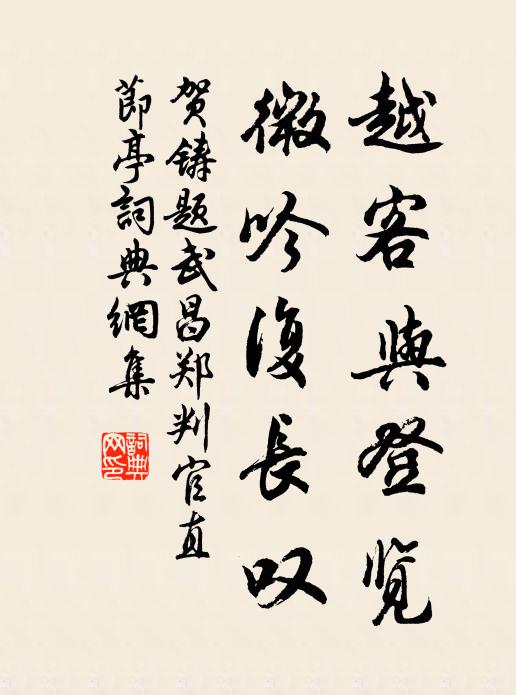 越客與登览
微吟復長叹
贺鋳题武昌郑判官直
節亭詞典網集
詞典网印